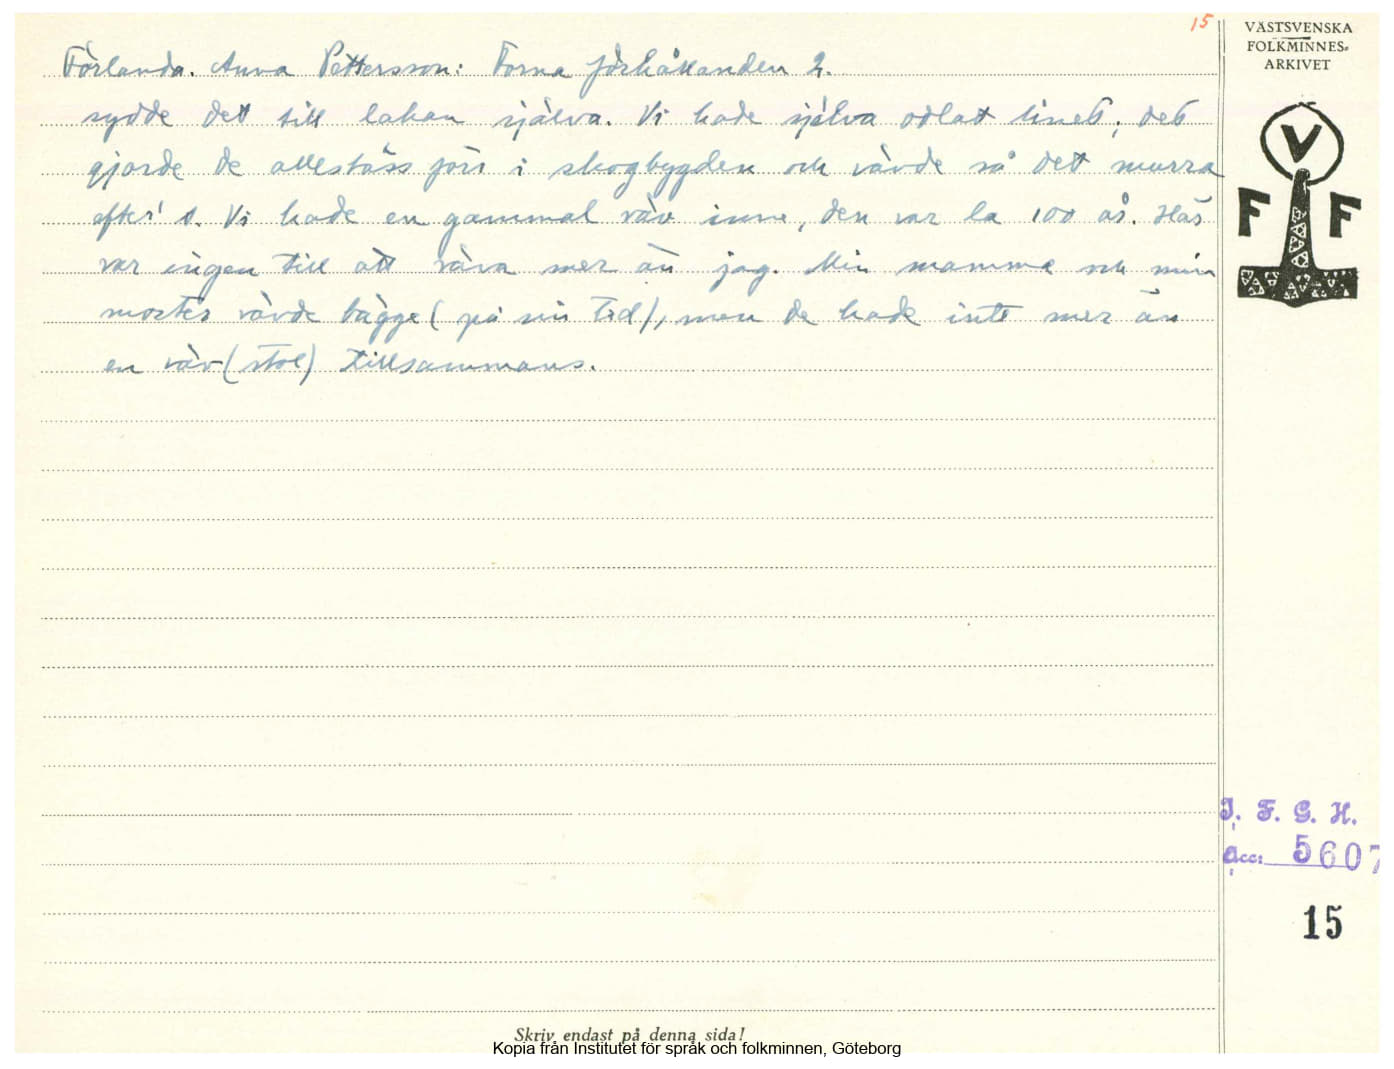 15
VÄSTSVENSKA
FOLKMINNES-
ARKIVET
Förlanda. Anna Pettersson: Forna förhållanden 2.
sydde dett till lakan själva. Vi hade själva odlat linet, det
gjorde de allestäss förr i skogbygden och vävde så dett murra
efter't. Vi hade en gammal väv inne, den var la 100 år. Här
var ingen till att väva mer än jag. Min mamma och min
moster vävde bägge (på sin tid), men de hade inte mer än
en väv(stol) tillsammans.
V
F F
I. F. G. H.
acc: 5607
15
Skriv endast på denna sida!
Kopia från Institutet för språk och folkminnen, Göteborg